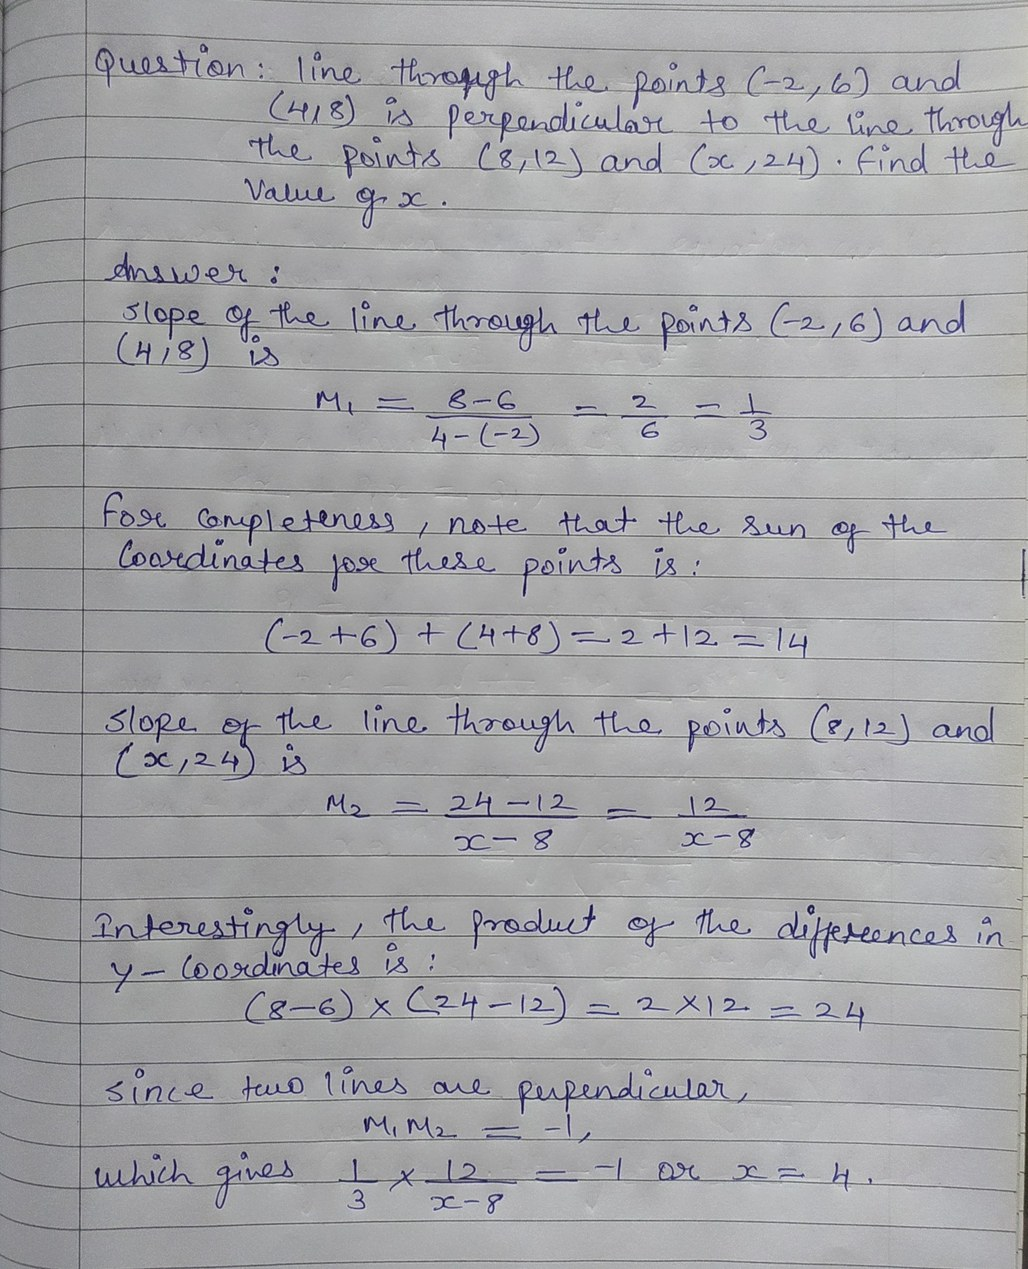 Question: line through the points (-2, 6) and
(4,8) is perpendicular to the line through
the points (8,12) and (x, 24). Find the
Value of x.
Answer:
Slope of the line through the points (-2, 6) and
(4,8) is
M₁ = 8-6 / 4-(-2) = 2/6 = 1/3
For completeness, note that the sun of the
Coordinates for these points is:
(-2+6) + (4+8) = 2+12 = 14
Slope of the line through the points (8,12) and
(x, 24) is
M₂ = 24-12 / x-8 = 12 / x-8
Interestingly, the product of the differences in
y-Coordinates is:
(8-6) × (24-12) = 2×12 = 24
Since two lines are perpendicular,
M₁M₂ = -1,
which gives 1/3 × 12 / x-8 = -1 or x = 4.